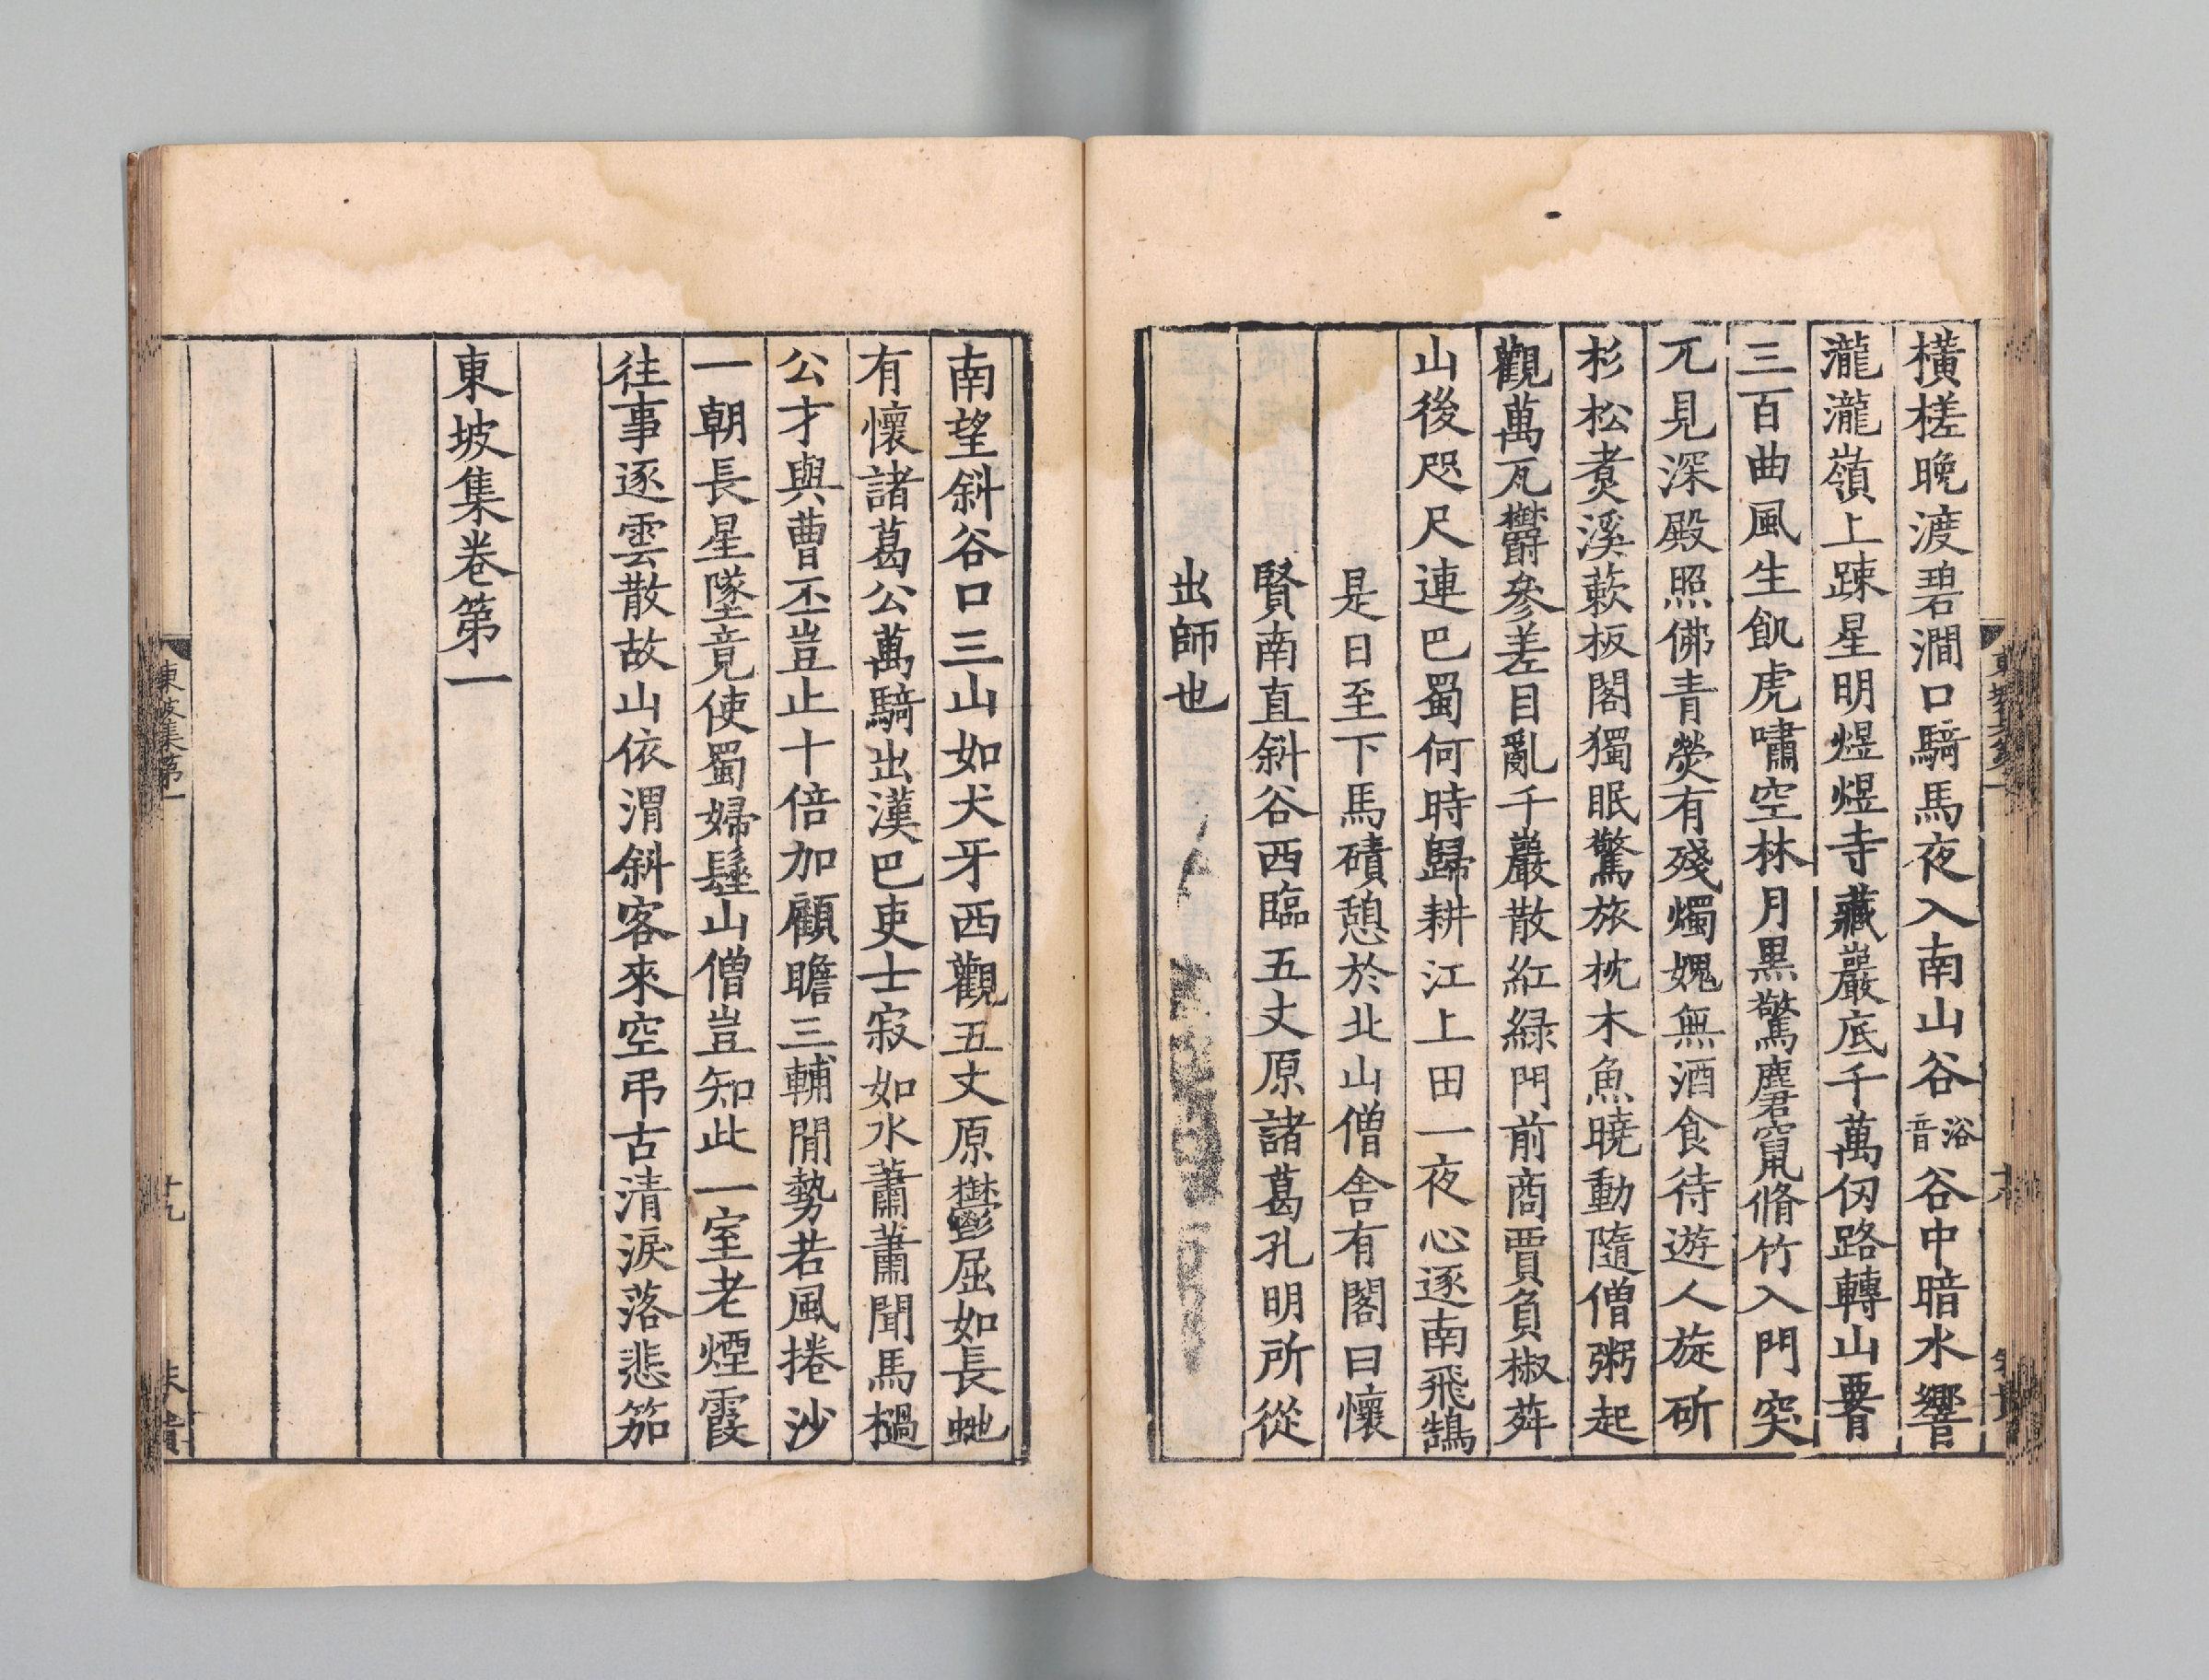 橫槎晚渡碧澗口騎馬夜入南山谷音浴谷中暗水響
瀧瀧嶺上踈星明煜煜寺藏巖底千萬仞路轉山𦝫
三百曲風生飢虎嘯空林月黒驚麏竄脩竹入門突
兀見深殿照佛青熒有殘燭媿無酒食待遊人旋斫
杉松煑溪蔌板閣獨眠驚旅枕木魚曉動隨僧粥起
觀萬瓦鬱參差目亂千巖散紅緑門前商賈負椒荈
山後咫尺連巴蜀何時歸耕江上田一夜心逐南飛鵠
是日至下馬磧憩於北山僧舍有閣曰懷
賢南直斜谷西臨五丈原諸葛孔明所從
出師也
南望斜谷口三山如犬牙西觀五丈原鬱屈如長虵
有懷諸葛公萬騎出漢巴吏士寂如水蕭蕭聞馬檛
公才與曹丕豈止十倍加顧瞻三輔間勢若風捲沙
一朝長星墜竟使蜀婦髽山僧豈知此一室老煙霞
往事逐雲散故山依渭斜客來空弔古清淚落悲笳
東坡集卷第一
東坡集第一
十九